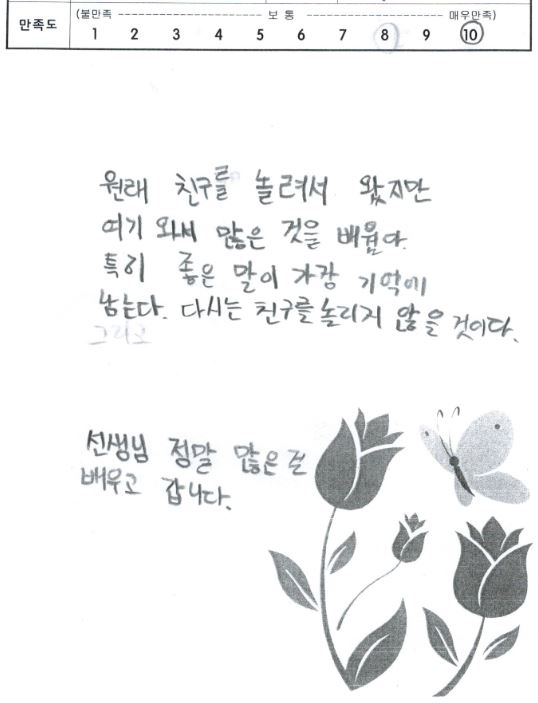 (불만족 ------------------------ 보 통 ------------------------ 매우만족)
만족도
1 2 3 4 5 6 7 8 9 10
원래 친구를 놀려서 왔지만
여기 와서 많은 것을 배웠다.
특히 좋은 말이 가장 기억에
남는다. 다시는 친구를 놀리지 않을 것이다.
그리고
선생님 정말 많은 걸
배우고 갑니다.